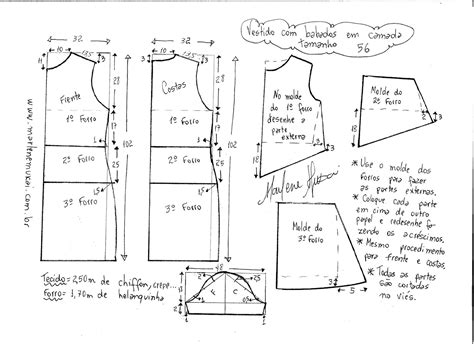 Vestido com babados em camada
tamanho 56
32
10
13,5
3
11
Frente
28
1º Forro
17
1
102
2º Forro
22
1,5
3º Forro
32
10
13,5
3
3
Costas
28
1º Forro
17
1
102
2º Forro
22
1,5
3º Forro
www.marlenemukai.com.br
No molde
do 1º forro
desenhe a
parte
externa
3
18
Marlene Mukai
Molde do
2º Forro
2
3
18
Molde do
3º Forro
5
* Use o molde dos
forros para fazer
as partes externas.
* Coloque cada parte
em cima de outro
papel e redesenhe fa-
zendo os acréscimos.
* Mesmo procedimento
para frente e costas.
* Todas as partes
são cortadas
no viés.
Tecido = 2,50m de chiffon, crepe...
Forro = 1,70m de helanquinha
48
2
F
C
1
1
1
1